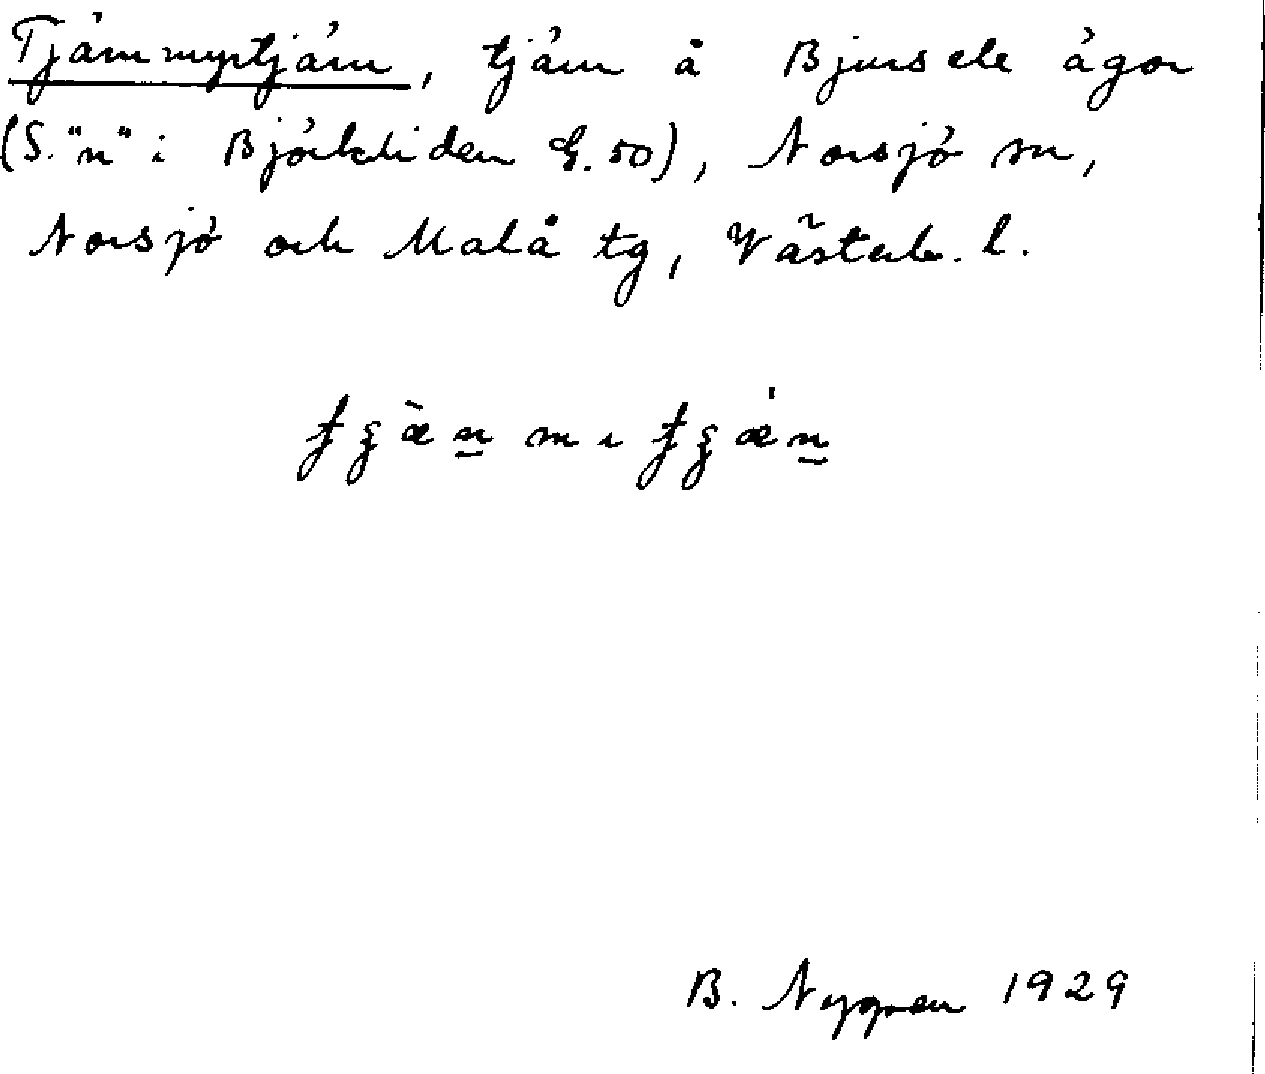 Tjärnmyrtjärn, tjärn å Bjursele ägor
(S. "n" i Björkliden G. 50), Norsjö sn,
Norsjö och Malå tg, Västerb. l.
B. Nygren 1929